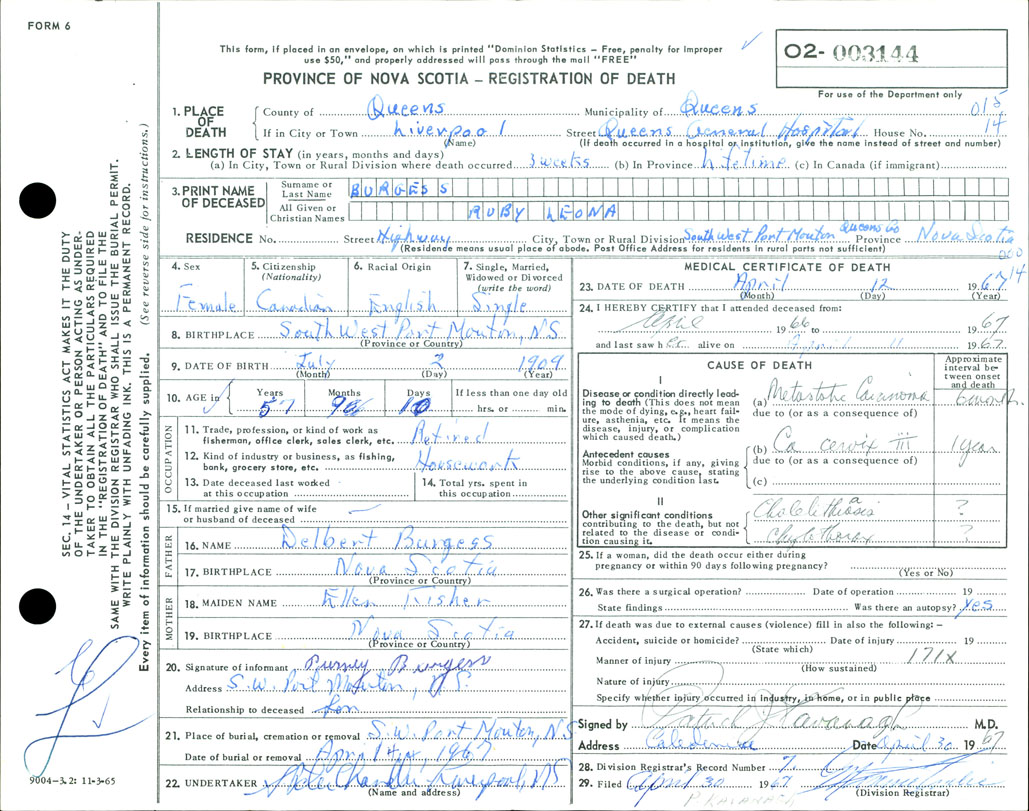 FORM 6
This form, if placed in an envelope, on which is printed "Dominion Statistics – Free, penalty for improper
use $50," and properly addressed will pass through the mail "FREE"
PROVINCE OF NOVA SCOTIA – REGISTRATION OF DEATH
02- 003144
For use of the Department only
015
14
1. PLACE OF DEATH
County of Queens Municipality of Queens
If in City or Town Liverpool Street Queens General Hospital House No.
(Name) (If death occurred in a hospital or institution, give the name instead of street and number)
2. LENGTH OF STAY (in years, months and days)
(a) In City, Town or Rural Division where death occurred 3 weeks (b) In Province lifetime (c) In Canada (if immigrant)
3. PRINT NAME OF DECEASED
Surname or Last Name BURGESS
All Given or Christian Names RUBY LEONA
RESIDENCE No. Street Highway City, Town or Rural Division South West Port Mouton Queens Co Province Nova Scotia
(Residence means usual place of abode. Post Office Address for residents in rural parts not sufficient)
000
14
4. Sex Female
5. Citizenship (Nationality) Canadian
6. Racial Origin English
7. Single, Married, Widowed or Divorced (write the word) Single
8. BIRTHPLACE South West Port Mouton, N.S.
(Province or Country)
9. DATE OF BIRTH July 2 1909
(Month) (Day) (Year)
10. AGE in Years Months Days If less than one day old
57 9 10 hrs. or min.
OCCUPATION
11. Trade, profession, or kind of work as
fisherman, office clerk, sales clerk, etc. Retired
12. Kind of industry or business, as fishing,
bank, grocery store, etc. Housework
13. Date deceased last worked
at this occupation
14. Total yrs. spent in
this occupation
15. If married give name of wife
or husband of deceased –
FATHER
16. NAME Delbert Burgess
17. BIRTHPLACE Nova Scotia
(Province or Country)
MOTHER
18. MAIDEN NAME Ellen Fisher
19. BIRTHPLACE Nova Scotia
(Province or Country)
20. Signature of informant Burgess
Address S.W. Port Mouton, N.S.
Relationship to deceased Son
21. Place of burial, cremation or removal S.W. Port Mouton, N.S
Date of burial or removal April 14, 1967
22. UNDERTAKER Liverpool, NS
(Name and address)
MEDICAL CERTIFICATE OF DEATH
23. DATE OF DEATH April 12 1967
(Month) (Day) (Year)
24. I HEREBY CERTIFY that I attended deceased from:
April 1966 to 1967
and last saw her alive on April 11 1967
CAUSE OF DEATH
Approximate interval between onset and death
I
Disease or condition directly leading to death (This does not mean
the mode of dying, e.g., heart failure, asthenia, etc. It means the
disease, injury, or complication
which caused death.)
(a) Metastatic Carcinoma 6 month
due to (or as a consequence of)
Antecedent causes
Morbid conditions, if any, giving
rise to the above cause, stating
the underlying condition last.
(b) Ca cervix III 1 year
due to (or as a consequence of)
(c)
II
Other significant conditions
contributing to the death, but not
related to the disease or condition causing it.
Cholelithiasis ?
Chylothorax ?
25. If a woman, did the death occur either during
pregnancy or within 90 days following pregnancy?
(Yes or No)
26. Was there a surgical operation? Date of operation 19
State findings Was there an autopsy? Yes
27. If death was due to external causes (violence) fill in also the following: –
Accident, suicide or homicide? Date of injury 19
(State which)
Manner of injury 171x
(How sustained)
Nature of injury
Specify whether injury occurred in industry, in home, or in public place
Signed by Patrick J Kavanagh M.D.
Address Caledonia Date April 30 1967
28. Division Registrar's Record Number 7
29. Filed April 30 1967
(Division Registrar)
P KAVANAGH
SEC. 14 – VITAL STATISTICS ACT MAKES IT THE DUTY
OF THE UNDERTAKER OR PERSON ACTING AS UNDER-
TAKER TO OBTAIN ALL THE PARTICULARS REQUIRED
IN THE "REGISTRATION OF DEATH" AND TO FILE THE
SAME WITH THE DIVISION REGISTRAR WHO SHALL ISSUE THE BURIAL PERMIT.
WRITE PLAINLY WITH UNFADING INK. THIS IS A PERMANENT RECORD.
Every item of information should be carefully supplied. (See reverse side for instructions.)
9004-3.2: 11-3-65